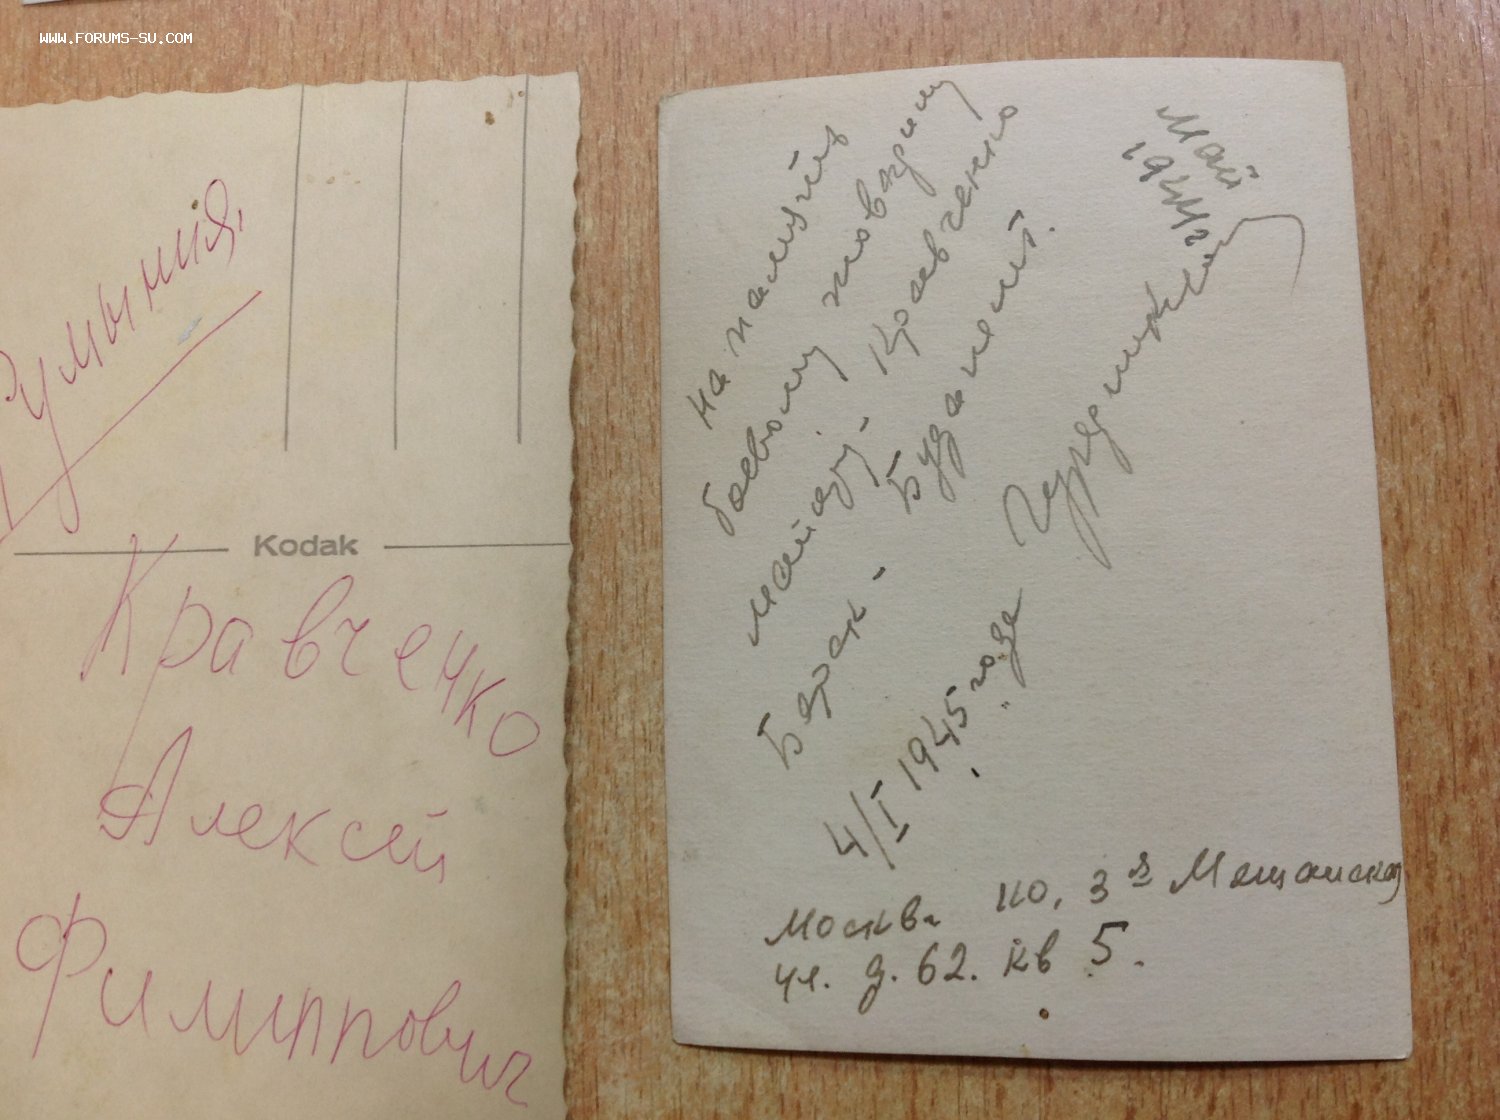 WWW.FORUMS-SU.COM
Румынія.
Kodak
Кравченко
Алексей
Филиппович
на память
боевому товарищу
майору Кравченко
Будапешт.
4/I 1945 года
май
1944 г
Москва 110, 3я Мещанская
ул. д. 62. кв 5.